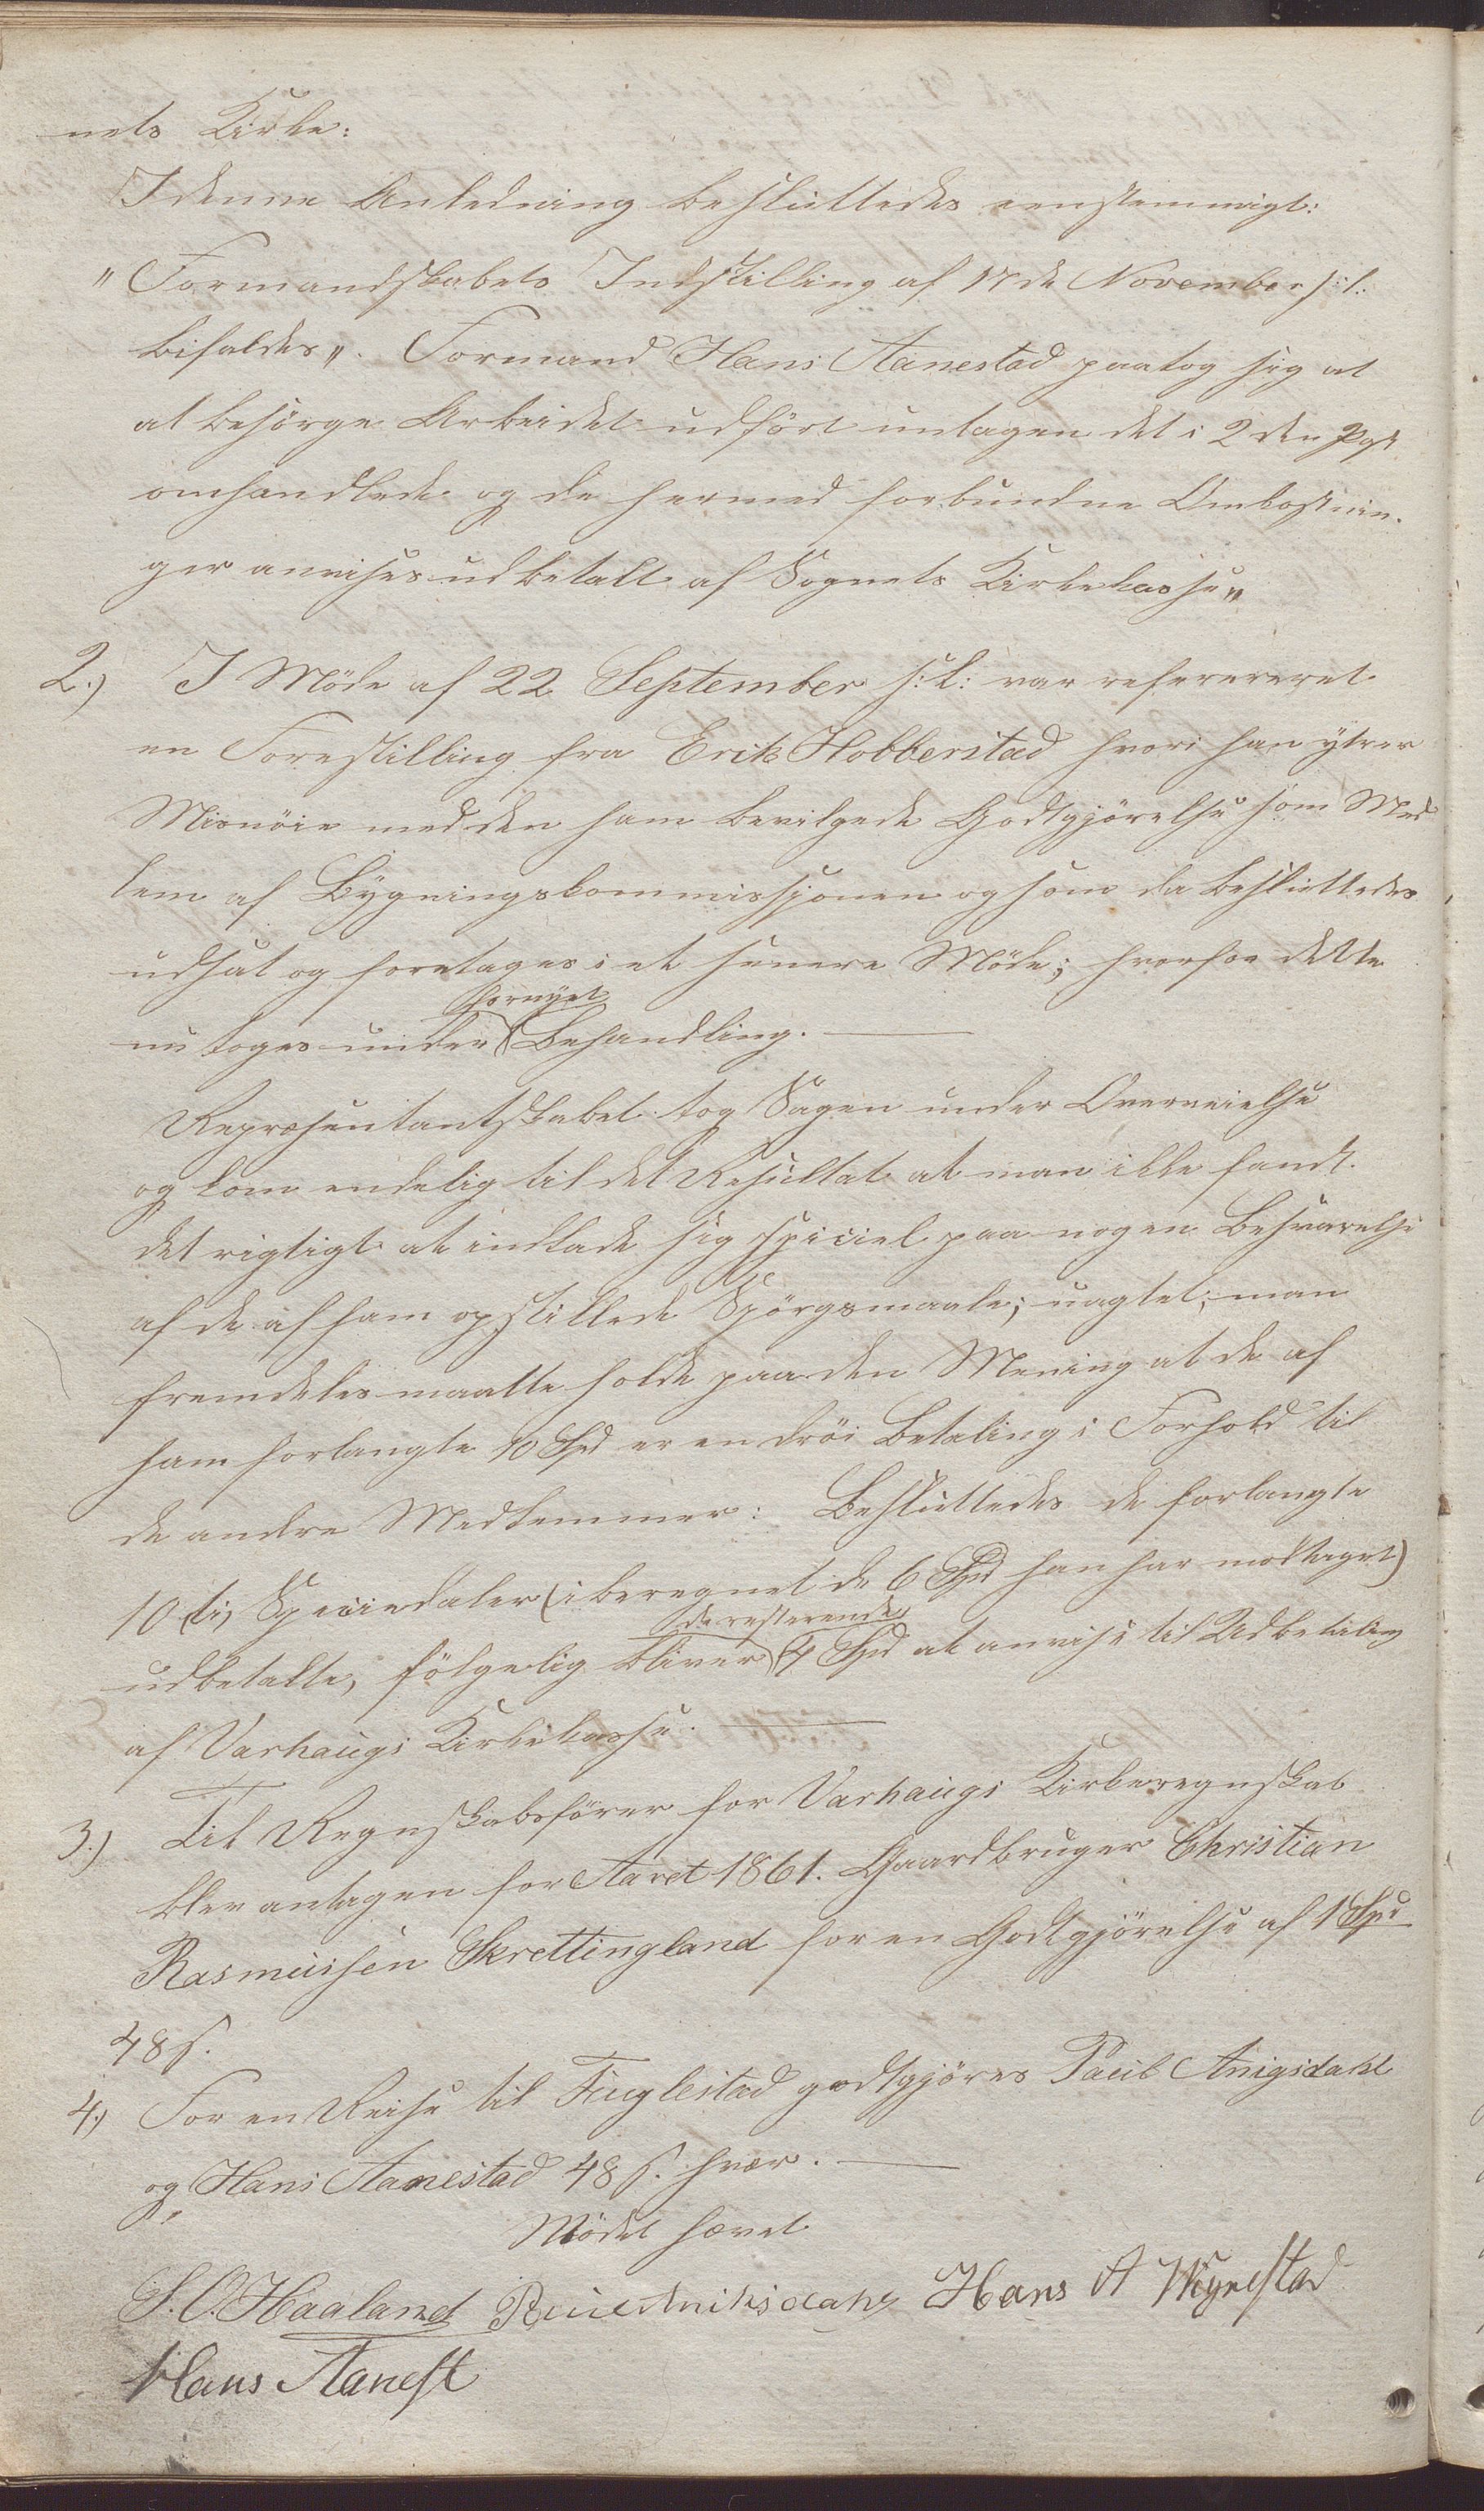 nets Kirke:
I denne Anledning besluttedes eenstemmigt:
"Formandskabets Indstilling af 17de November s: l:
bifaldes". Formand Hans Aanestad paatog sig at
at besørge Arbeidet udført untagen det i 2den Pgt
omhandlede og de hermed forbundne Omkostnin-
ger anvises udbetalt af Sognets Kirkekasse"
2.) I Møde af 22 September s: l: var refereret
en Forestilling fra Erik Hobberstad hvori han ytrer
Misnøie med den ham bevilgede Godtgjørelse som Med
lem af Bygningskommissjonen og som da besluttedes
udsat og foretages i et senere Møde; hvorfor dette
nu toges under fornyet Behandling.
Repræsentantskabet tog Sagen under Overveielse
og kom endelig til det Resultat at man ikke fandt
det rigtigt at indlade sig speciel paa nogen Besvarelse
af de af ham opstillede Spørgsmaale; uagtet; man
fremdeles maatte holde paa den Mening at de af
ham forlangte 10 Spd er en drøi Betaling i Forhold til
de andre Medlemmer: Besluttedes de forlangte
10 (ti) Speciedaler (iberegnet de 6 Spd han har modtaget)
udbetalte, følgelig bliver de resterende 4 Spd at anvise til Udbetaling
af Varhaugs Kirkekasse.
3.) Til Regnskabsfører for Varhaugs Kirkeregnskab
blev antagen for Aaret 1861. Gaardbruger Christian
Rasmussen Skrettingland for en Godtgjørelse af 1 Spd
48 s.
4.) For en Reise til Fuglestad godtgjøres Paul Anigsdahl
og Hans Aanestad 48 s. hver.
Mødet hævet
S. O. Haaland Anihsdahl Hans A
Hans Aanest